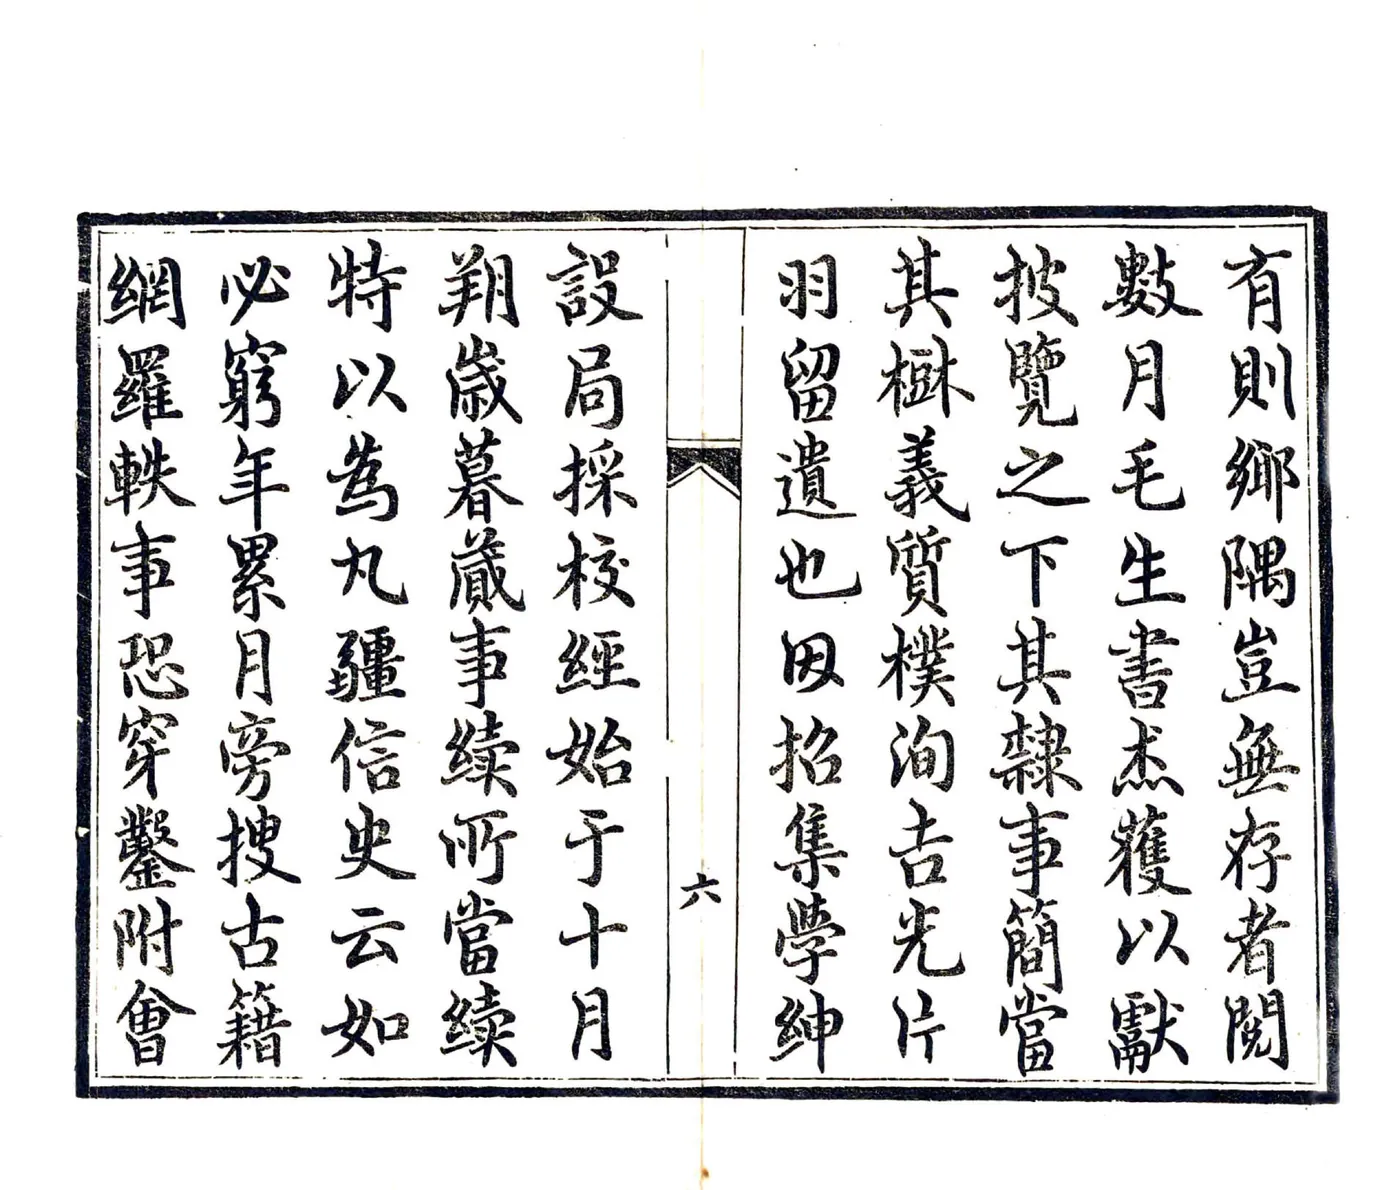 有則鄉隅豈無存者閱
數月毛生書杰獲以獻
披覽之下其隸事簡當
其樹義質樸洵吉光片
羽留遺也因招集學紳
六
設局採校經始于十月
朔歲暮蕆事續所當續
特以為丸疆信史云如
必窮年累月旁搜古籍
網羅軼事恐穿鑿附會